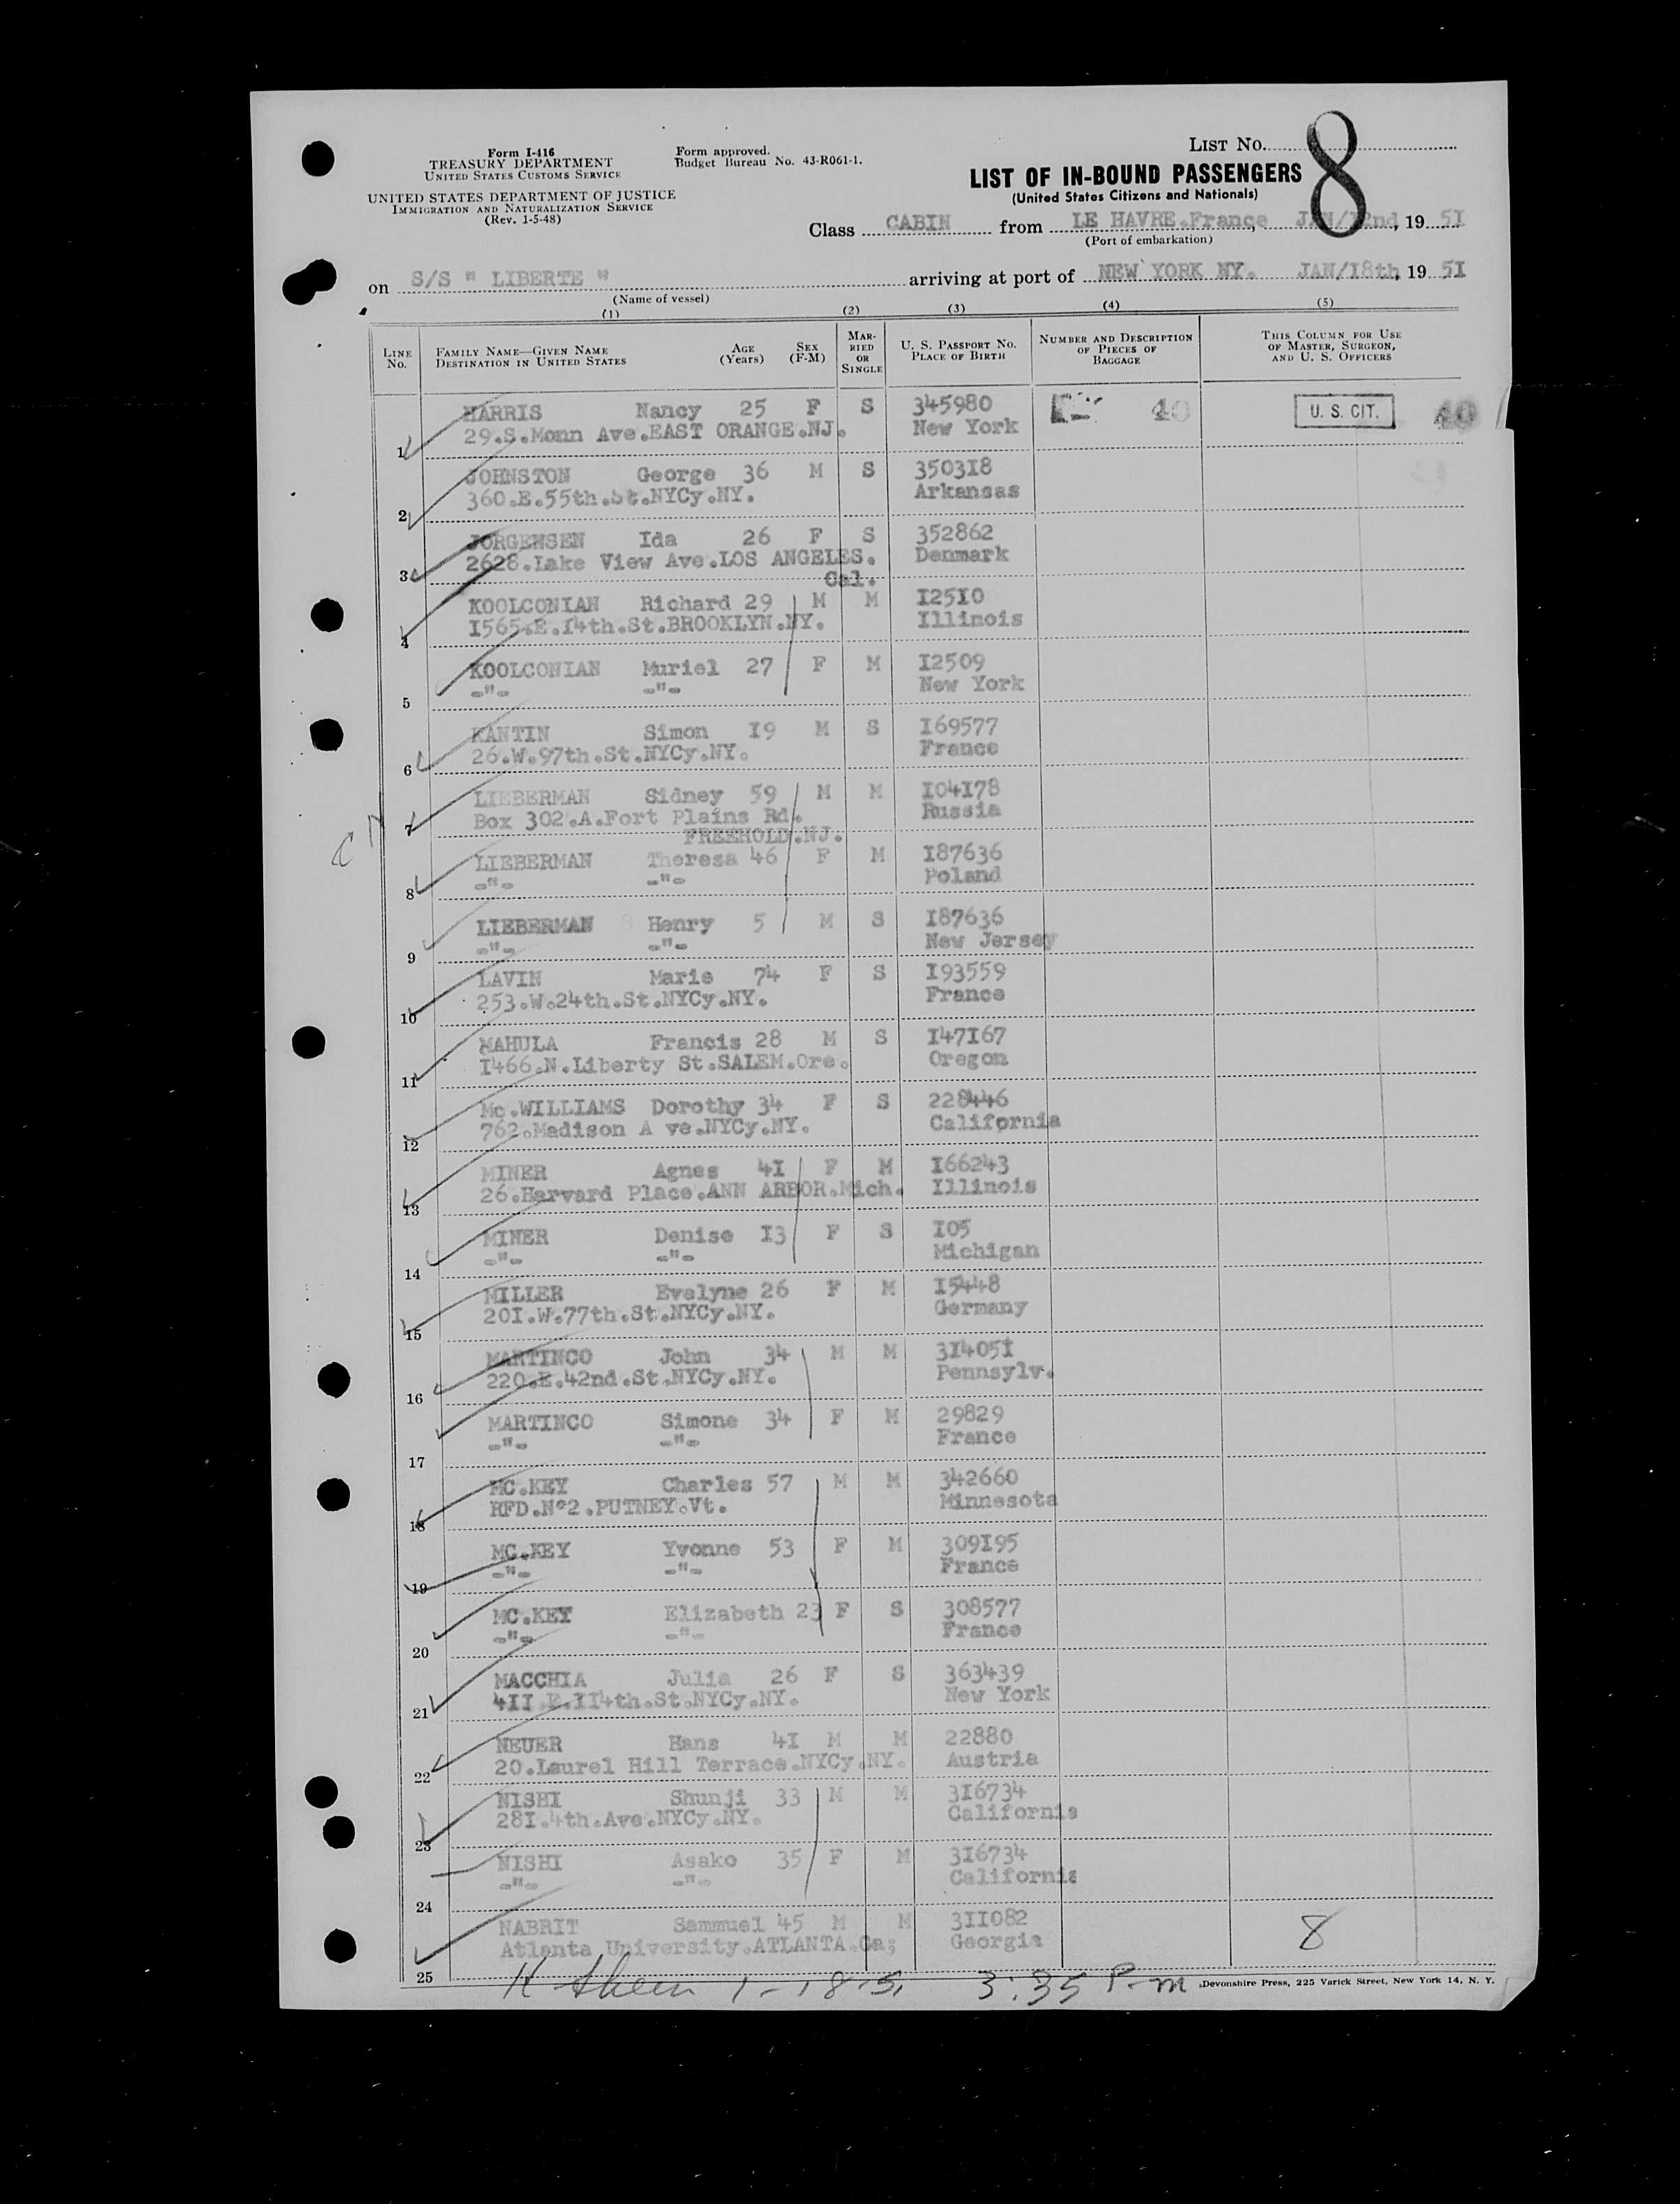 Form I-416
TREASURY DEPARTMENT
UNITED STATES CUSTOMS SERVICE
UNITED STATES DEPARTMENT OF JUSTICE
IMMIGRATION AND NATURALIZATION SERVICE
(Rev. 1-5-48)
Form approved.
Budget Bureau No. 43-R061-1.
LIST NO. 8
LIST OF IN-BOUND PASSENGERS
(United States Citizens and Nationals)
Class CABIN from LE HAVRE.France, 19 51
(Port of embarkation)
on S/S " LIBERTE " arriving at port of NEW YORK NY. JAN/I8th, 19 5I
(Name of vessel)
(1) (2) (3) (4) (5)
LINE No. FAMILY NAME—GIVEN NAME DESTINATION IN UNITED STATES AGE (Years) SEX (F-M) MARRIED OR SINGLE U. S. PASSPORT NO. PLACE OF BIRTH NUMBER AND DESCRIPTION OF PIECES OF BAGGAGE THIS COLUMN FOR USE OF MASTER, SURGEON, AND U. S. OFFICERS
HARRIS Nancy 25 F S 345980 40 U. S. CIT. 40
1 29.S.Monn Ave.EAST ORANGE.NJ. New York
JOHNSTON George 36 M S 3503I8
2 360.E.55th.St.NYCy.NY. Arkansas
JORGENSEN Ida 26 F S 352862
3 2628.Lake View Ave.LOS ANGELES. Denmark
Cal.
KOOLCONIAN Richard 29 M M I25I0
4 I565.E.I4th.St.BROOKLYN.NY. Illinois
KOOLCONIAN Muriel 27 F M I2509
5 -"- -"- New York
KANTIN Simon I9 M S I69577
6 26.W.97th.St.NYCy.NY. France
LIEBERMAN Sidney 59 M M I04I78
7 Box 302.A.Fort Plains Rd. Russia
FREEHOLD.NJ.
LIEBERMAN Theresa 46 F M I87636
8 -"- -"- Poland
LIEBERMAN Henry 5 M S I87636
9 -"- -"- New Jersey
LAVIN Marie 74 F S I93559
10 253.W.24th.St.NYCy.NY. France
MAHULA Francis 28 M S I47I67
11 I466.N.Liberty St.SALEM.Ore. Oregon
Mc.WILLIAMS Dorothy 34 F S 228446
12 762.Madison A ve.NYCy.NY. California
MINER Agnes 4I F M I66243
13 26.Harvard Place.ANN ARBOR.Mich. Illinois
MINER Denise I3 F S I05
14 -"- -"- Michigan
MILLER Evelyne 26 F M I5448
15 20I.W.77th.St.NYCy.NY. Germany
MARTINCO John 34 M M 3I405I
16 220.E.42nd.St.NYCy.NY. Pennsylv.
MARTINCO Simone 34 F M 29829
17 -"- -"- France
MC.KEY Charles 57 M M 342660
18 RFD.N°2.PUTNEY.Vt. Minnesota
MC.KEY Yvonne 53 F M 309I95
19 -"- -"- France
MC.KEY Elizabeth 23 F S 308577
20 -"- -"- France
MACCHIA Julia 26 F S 363439
21 4II E.II4th.St.NYCy.NY. New York
NEUER Hans 4I M M 22880
22 20.Laurel Hill Terrace.NYCy.NY. Austria
NISHI Shunji 33 M M 3I6734
23 28I.4th.Ave.NYCy.NY. California
NISHI Asako 35 F M 3I6734
24 -"- -"- California
NABRIT Sammuel 45 M M 3II082
25 Atlanta University.ATLANTA.Ga; Georgia 8
1-18-51 3:35 P.m
Devonshire Press, 225 Varick Street, New York 14, N. Y.